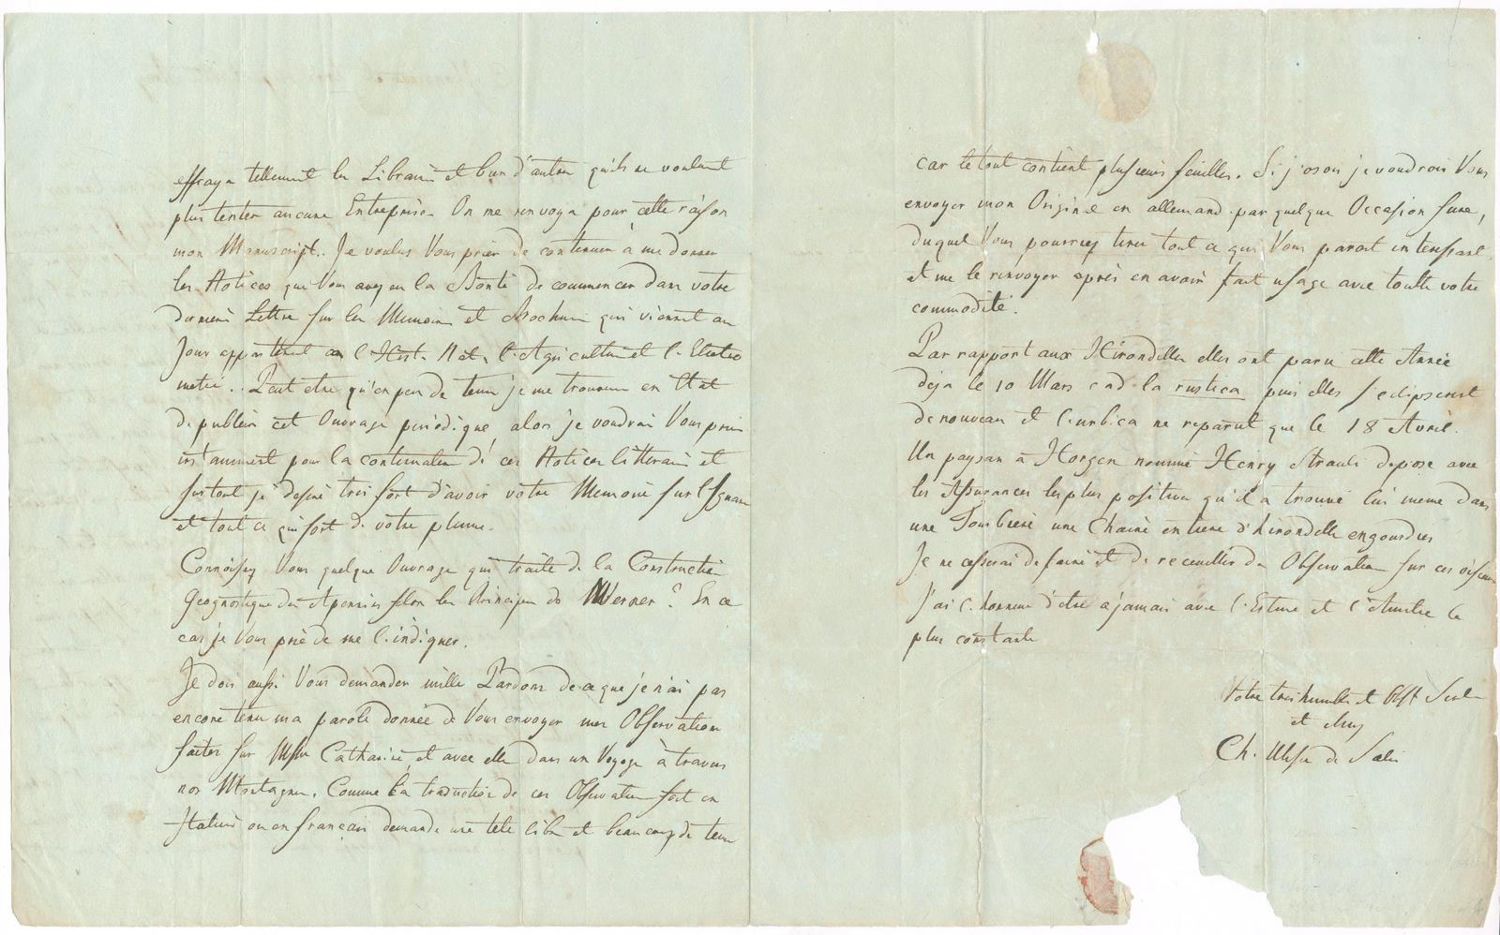 effraya tellement les Libraires et bien d'autres qu'ils ne voulurent
plus tenter aucune Entreprise. On me renvoya pour cette raison
mon Manuscript.. Je voulus Vous prier de continuer à me donner
les Notices que Vous avez eu la Bonté de commencer dans votre
derniere Lettre sur les Memoires et Brochures qui vienent au
Jour appartenant a l'Hist. Nat. l'Agriculture et l'Electro
metrie.. Peut etre qu'en peu de tems je me trouverai en Etat
de publier cet Ouvrage periodique alors je voudrai Vous prier
instamment pour la continuation de ces Notices litteraires et
surtout je desire tres fort d'avoir votre Memoire sur
et tout ce qui sort de votre plume.
Connoissez Vous quelque Ouvrage qui traite de la Construction
Geognostique des Apennins selon les Principes de Werner? En ce
cas je Vous prie de me l'indiquer.
Je dois aussi Vous demander mille Pardons de ce que je n'ai pas
encore tenu ma parole donnée de Vous envoyer mes Observations
faites sur Catharine, et avec elle dans un Voyage à travers
nos Montagnes. Comme la traduction de ces Observations soit en
Italien ou en français demande une tete libre et beaucoup de tems
car le tout contient plusieurs feuilles. Si j'osois je voudrois Vous
envoyer mon Original en allemand par quelque Occasion sure,
duquel Vous pourriez tirer tout ce qui Vous paroit interessant,
et me le renvoyer après en avoir fait usage avec toutte votre
commodité.
Par rapport aux Hirondelles elles ont paru cette Année
deja le 10 Mars c a d la rustica puis elles s'eclipserent
de nouveau et l'urbica ne reparut que le 18 Avril.
Un paysan à Horgen nommé Henry Strauli depose avec
les Assurances les plus positives qu'il a trouvé lui meme dans
une Tourbiere une Chaine entiere d'hirondelles engourdies
Je ne cesserai de faire et de receuiller des Observations sur ces oiseaux
J'ai l'honneur d'etre a jamais avec l'Estime et l'Amitie la
plus constante
Votre tres humble et Obst Serv
et Amy
Ch. Ulisse de Salis